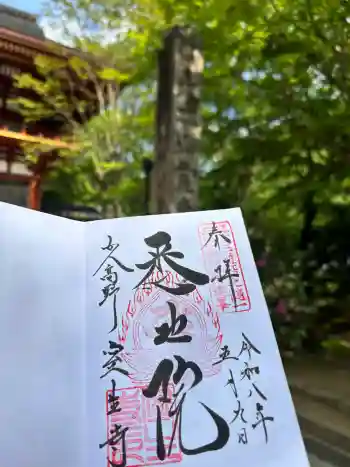 奉拝
令和八年
五月九日
悉地院
女人高野
室生寺